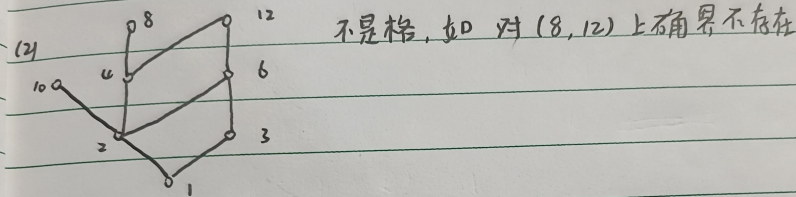 8 12 不是格,如 对(8,12)上确界不存在
(2)
10 4 6
2 3
1